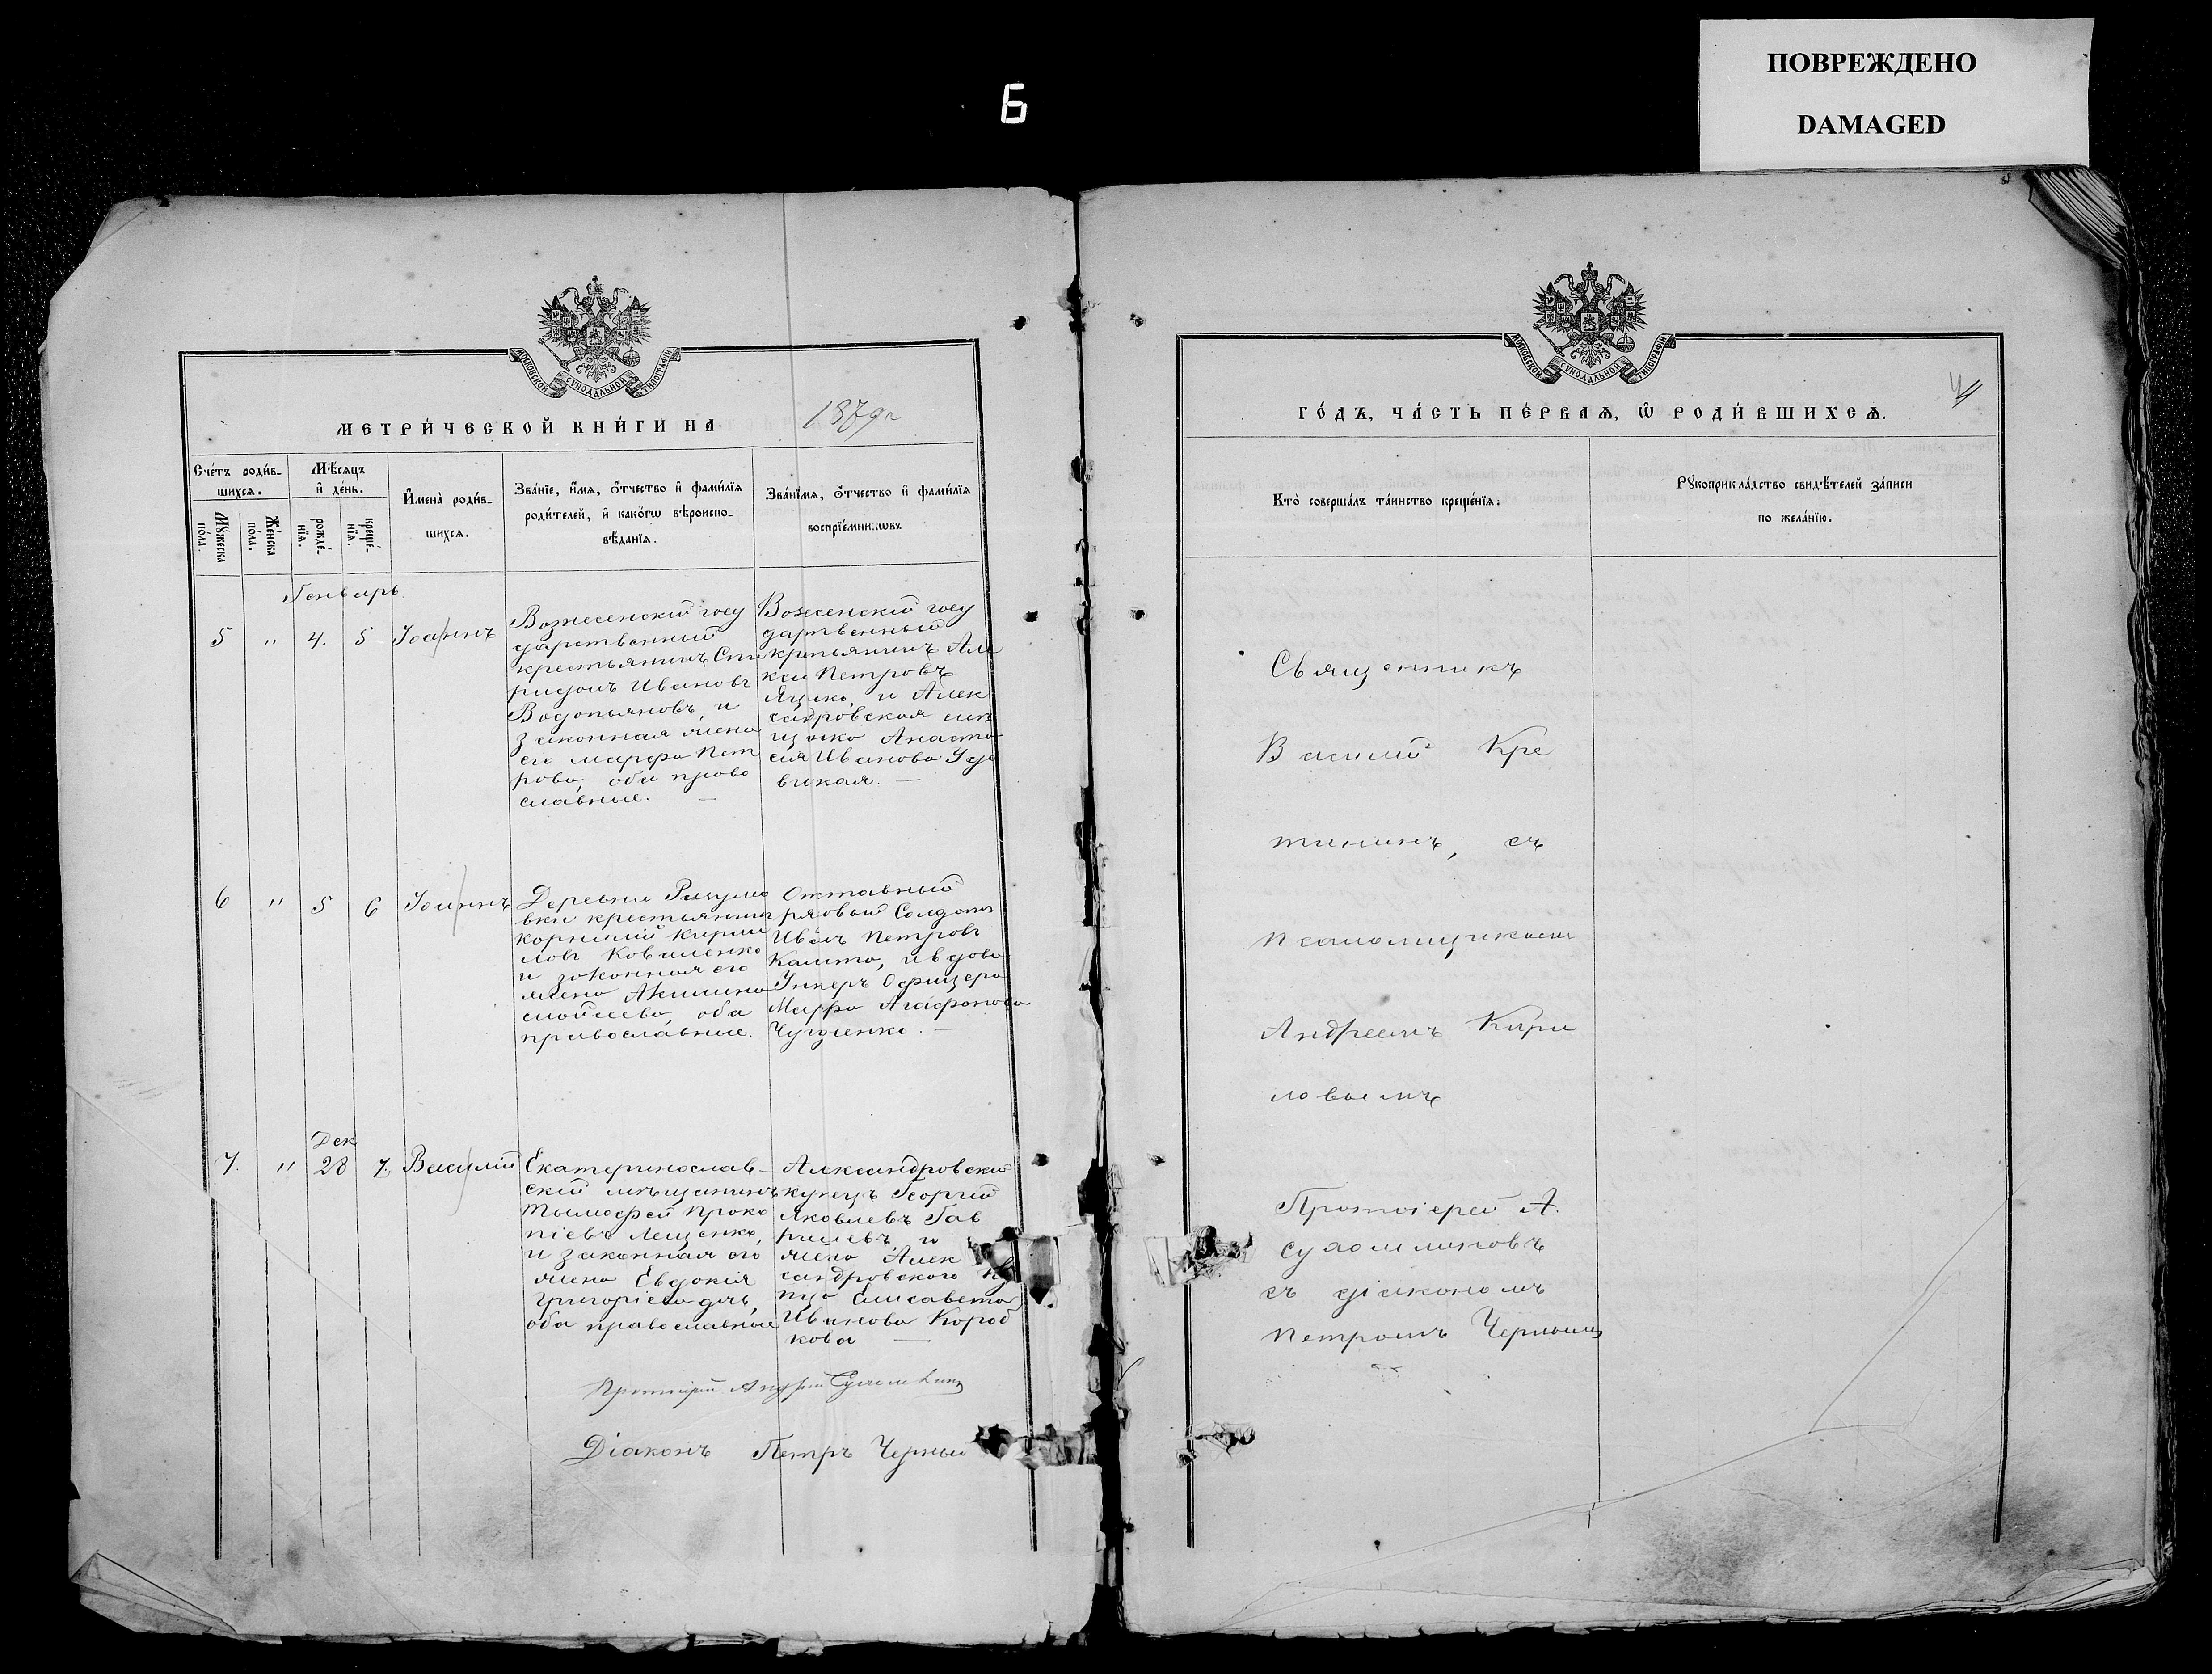 ПОВРЕЖДЕНО
DAMAGED
Б
МОСКОВСКОЙ СѴНОДАЛЬНОЙ ТИПОГРАФІИ
МЕТРИ́ЧЕСКОЙ КНИ́ГИ НА 1879 г
Сче́тъ роди́в-
шихсѧ.
Мꙋ́жеска по́ла.
Же́нска по́ла.
Мѣ́сѧцъ
и҆ де́нь.
рожде́-нїѧ.
креще́-нїѧ.
И҆мена̀ роди́в-
шихсѧ.
Зва́нїе, и҆́мѧ, ѻ҆́тчество и҆ фами́лїѧ
роди́телей, и҆ како́гѡ вѣроиспо-
вѣ́данїѧ.
Зва́нїмѧ, ѻ҆́тчество и҆ фами́лїѧ
воспрїе́мни..ѡвъ
Генварь
5 " 4. 5 Іоаннъ
Вознесенскій госу
дарственный
крестьянинъ Спи
ридонъ Ивановъ
Водопьяновъ, и
законная жена
его Марфа Пет
рова, оба право
славные. —
Возесенскій госу
дарвенный
кртьянинъ Але
ксей Петровъ
Яцко, и Алек
сандровская мѣ
щанка Анаста
сія Иванова
6 " 5 6 Іоаннъ
Деревни Разумо
вки крестьянинъ
Корнилій Кирил
ловъ Коваленко
и законная его
жена Акилина
Моисеева, оба
православные.
Отставный
рядовый Солдатъ
Иванъ Петровъ
и вдова
Унтеръ Офицера
Марфа Агафонова
—
7. " Дек 28 7. Василій
Екатеринослав-
скій мѣщанинъ
Тымофей Проко
піевъ Лещенко,
и законная его
жена Евдокія
Григоріева дочь,
оба православные
Александровскій
купецъ Георгій
Яковлевъ Гав
риловъ, и
жена Алек
сандровского Ку
пца Елисавета
Иванова Короб
кова —
Протоіерей Андрей
Діаконъ Петръ Черный
МОСКОВСКОЙ СѴНОДАЛЬНОЙ ТИПОГРАФІИ
4
ГО́ДЪ, ЧА́СТЬ ПЕ́РВАѦ, Ѽ РОДИ́ВШИХСѦ.
Кто̀ соверша́лъ та́инство креще́нїѧ.
Рꙋкоприкла́дство свидѣ́телей за́писи
по жела́нїю.
Священникъ
Василій Кре
тининъ, съ
псаломщикомъ
Андреемъ Кири
ловымъ
Протоіерей А.
Сухомлиновъ
съ діакономъ
Петромъ Чернымъ